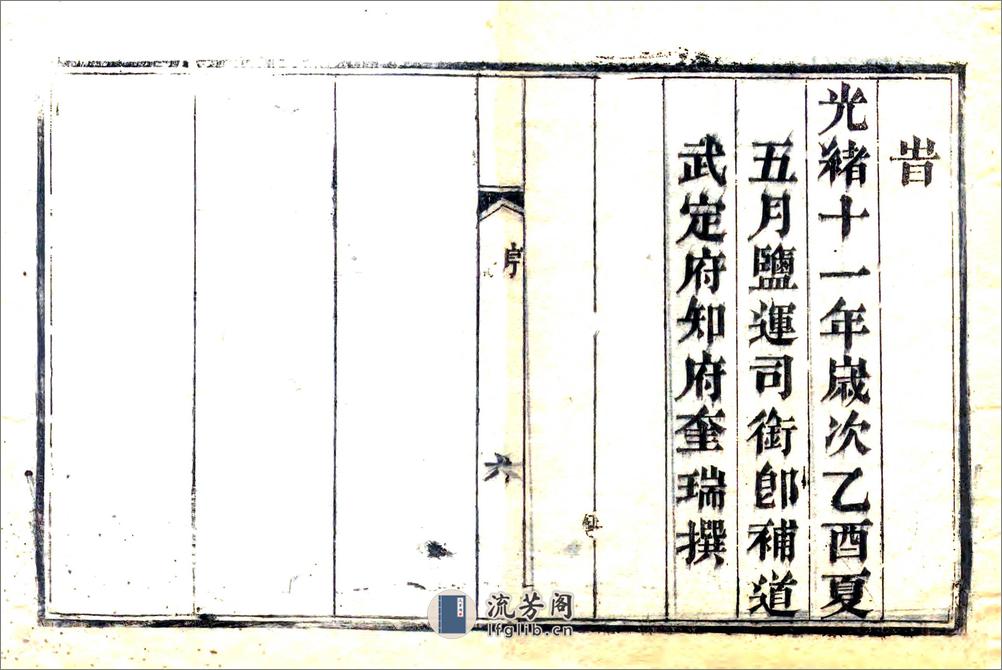 旹
光緒十一年歲次乙酉夏
五月鹽運司銜卽補道
武定府知府奎瑞撰
序
六
流芳阁
lfglib.cn